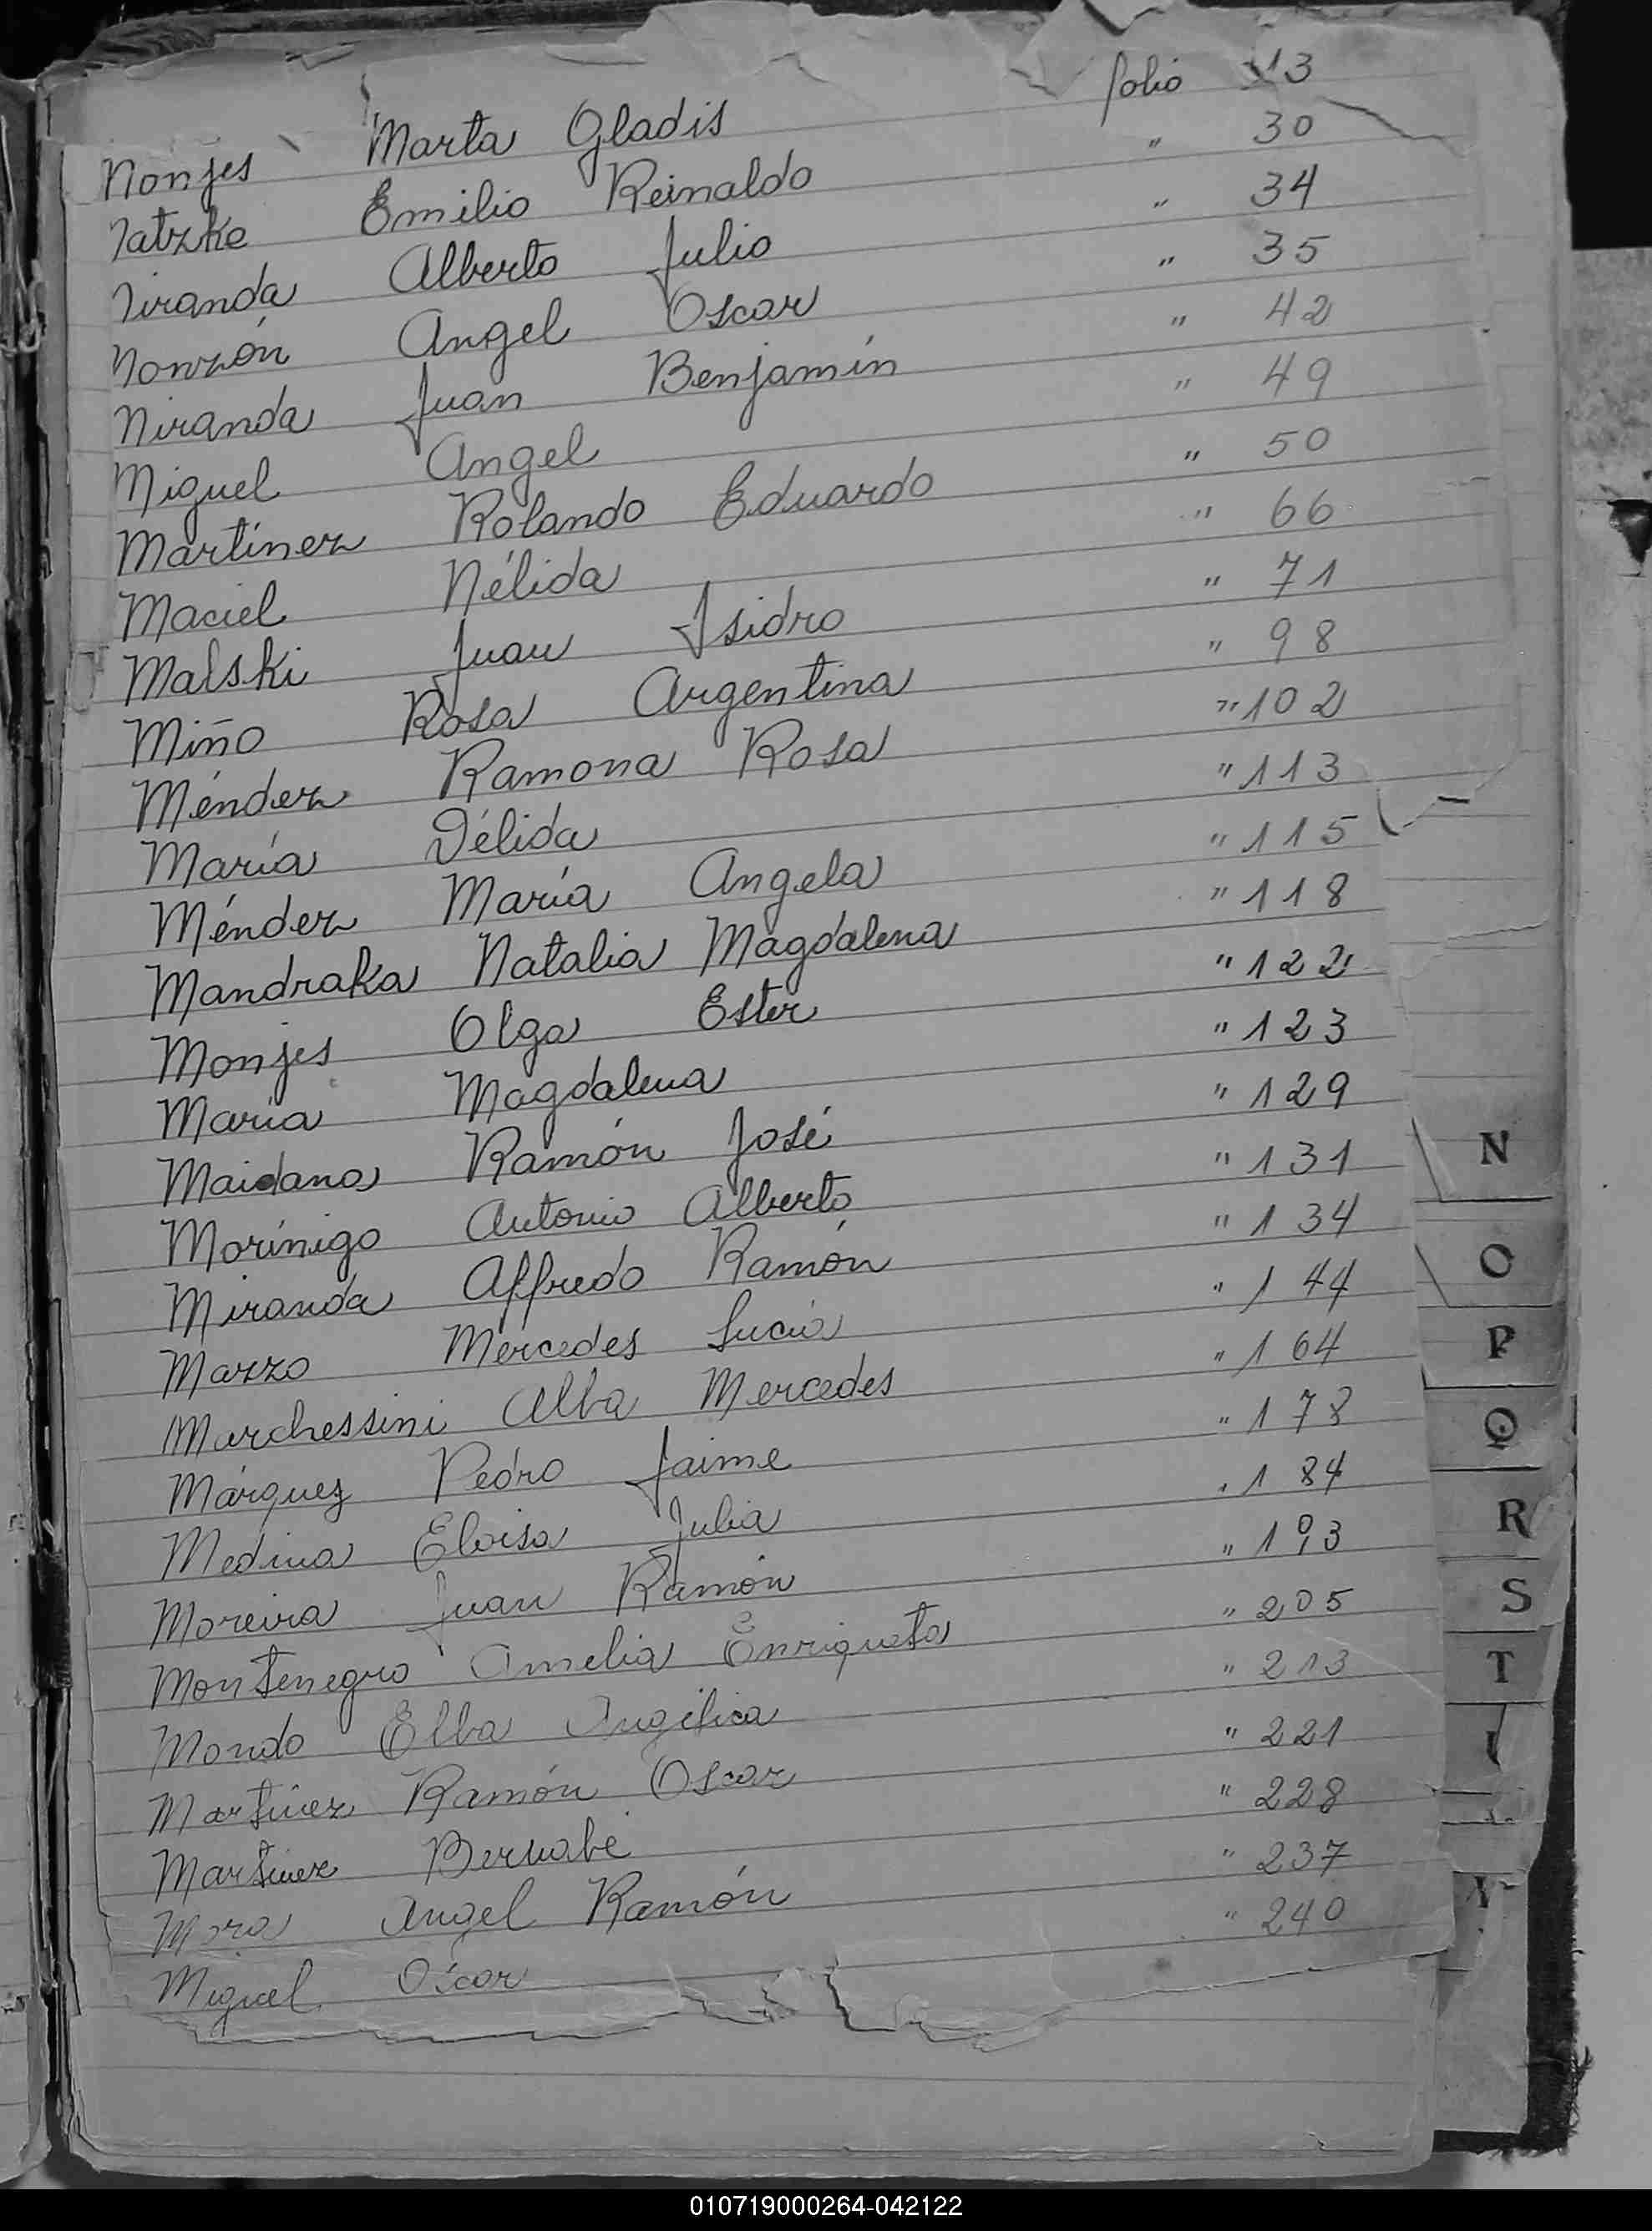 Monjes Marta Gladis folio 13
Matzke Emilio Reinaldo " 30
Miranda Alberto Julio " 34
Monzón Angel Oscar " 35
Miranda Juan Benjamín " 42
Miguel Angel " 49
Martínez Rolando Eduardo " 50
Maciel Nélida " 66
Malski Juan Isidro " 71
Miño Rosa Argentina " 98
Méndez Ramona Rosa " 102
María Délida " 113
Méndez María Angela " 115
Mandraka Natalia Magdalena " 118
Monjes Olga Ester " 122
María Magdalena " 123
Maidana Ramón José " 129
Morínigo Antonio Alberto " 131
Miranda Alfredo Ramón " 134
Mazzo Mercedes Lucía " 144
Marchessini Alba Mercedes " 164
Márquez Pedro Jaime " 178
Medina Eloisa Julia " 184
Moreira Juan Ramón " 193
Montenegro Amelia Enriqueta " 205
Mondo Elba Angélica " 213
Martinez Ramón Oscar " 221
Martinez Bernabé " 228
Mora Angel Ramón " 237
Miguel Oscar " 240
N
O
P
Q
R
S
T
010719000264-042122